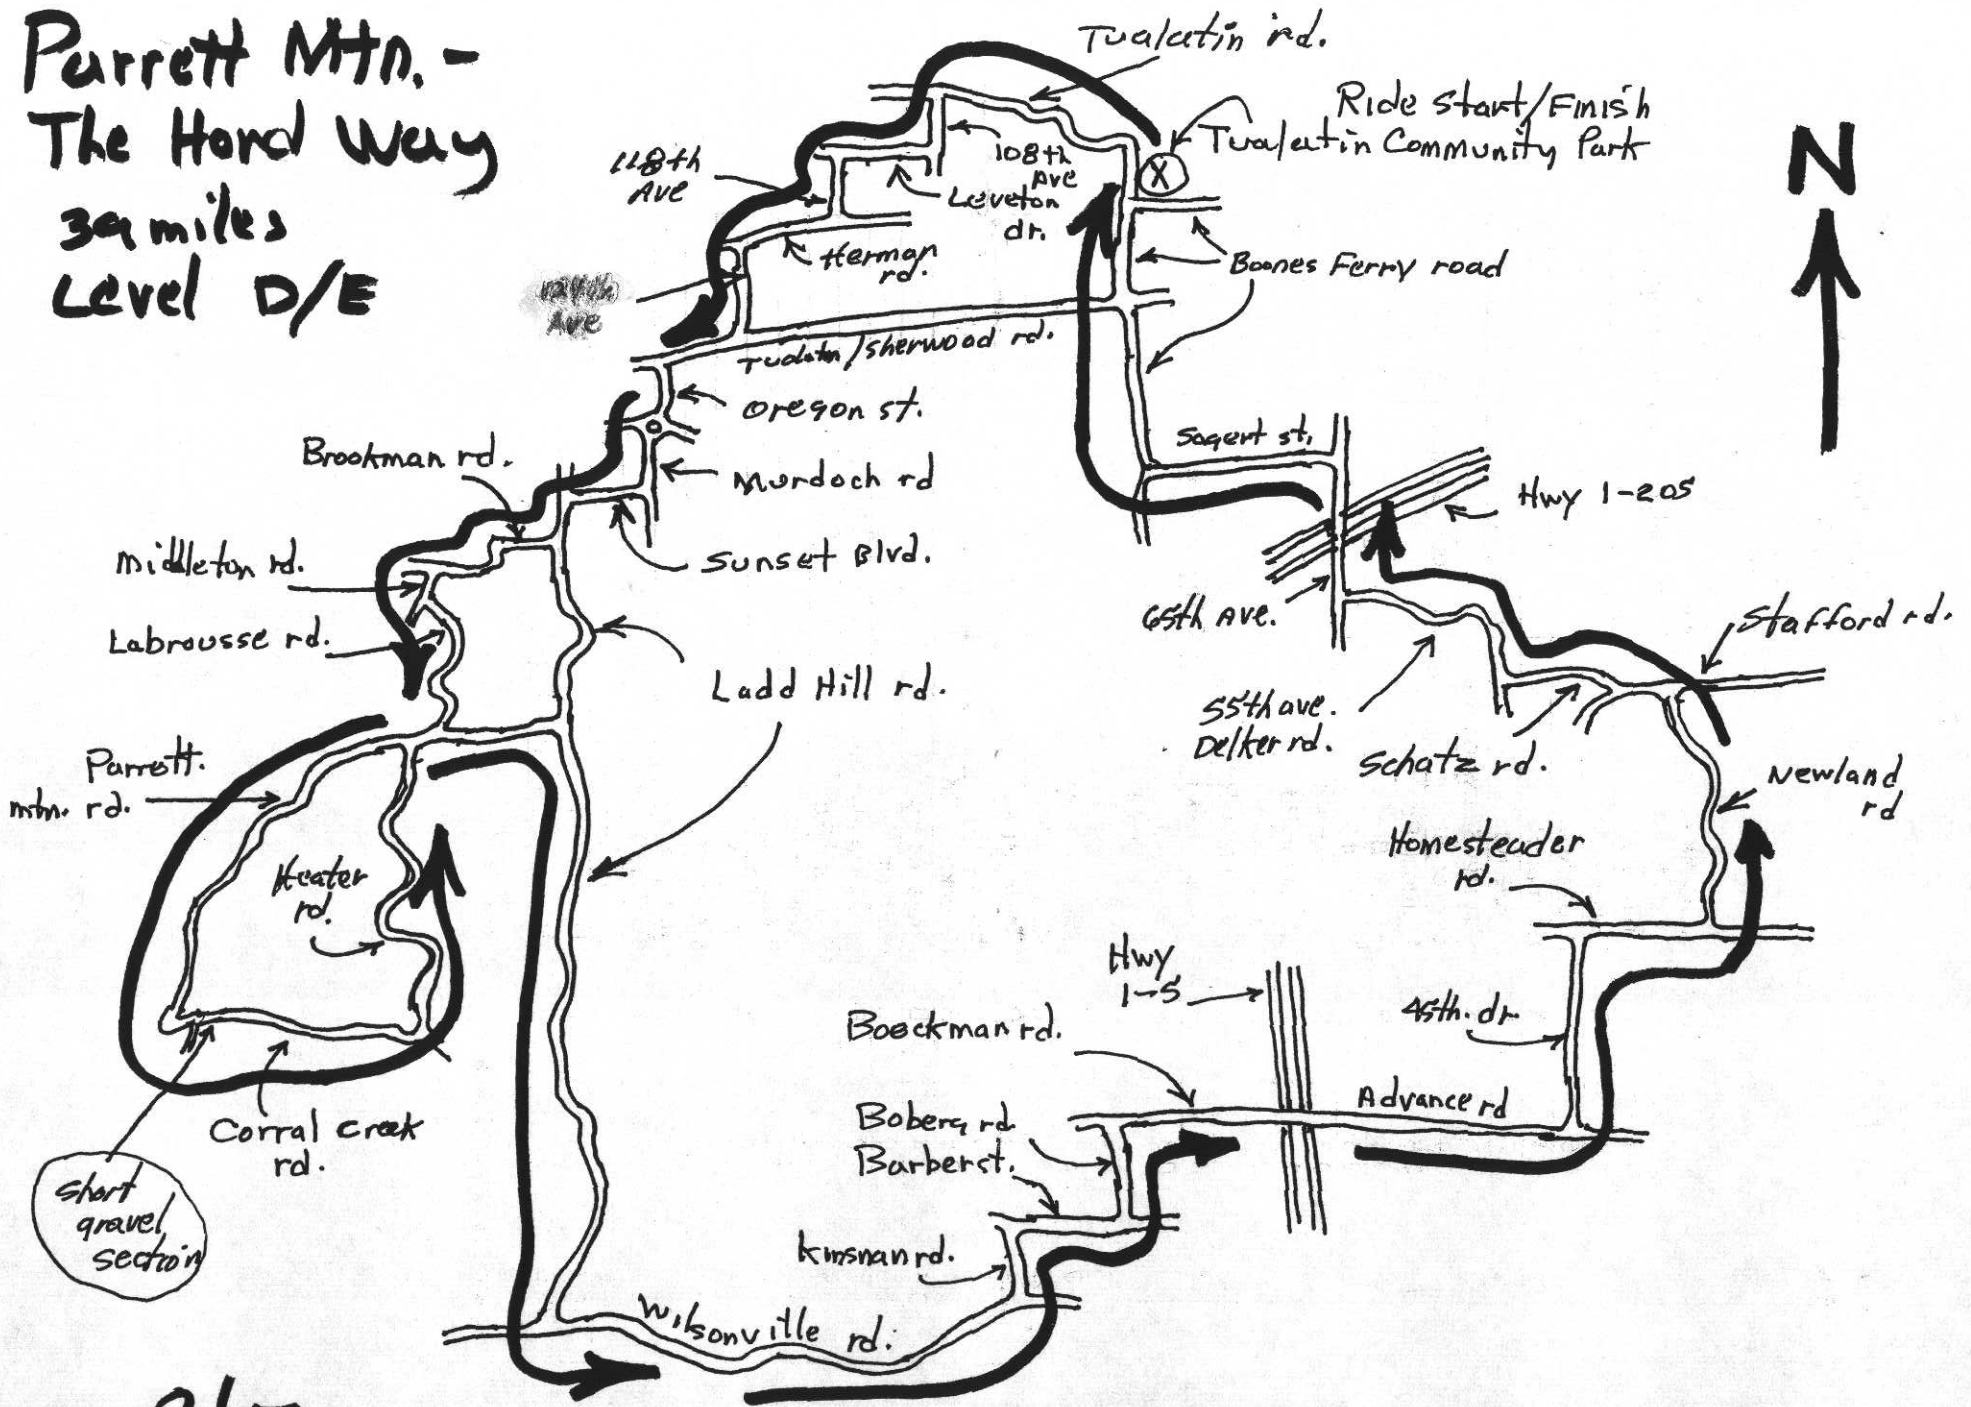 Parrett Mtn. -
The Hard Way
39 miles
Level D/E
Tualatin rd.
Ride Start/Finish
Tualatin Community Park
X
N
118th
Ave
108th
Ave
Leveton
dr.
Herman
rd.
124th
Ave
Boones Ferry road
Tualatin/Sherwood rd.
Oregon st.
Brookman rd.
Murdoch rd
Sagert st.
Hwy I-205
Middleton rd.
Sunset Blvd.
65th Ave.
Stafford rd.
Labrousse rd.
Ladd Hill rd.
55th ave.
Delker rd.
Schatz rd.
Parrett
mtn. rd.
Newland
rd
Homesteader
rd.
Heater
rd.
Hwy
I-5
45th. dr
Boeckman rd.
Advance rd
Boberg rd
Barber st.
Corral Creek
rd.
Short
gravel
section
Kinsman rd.
Wilsonville rd.